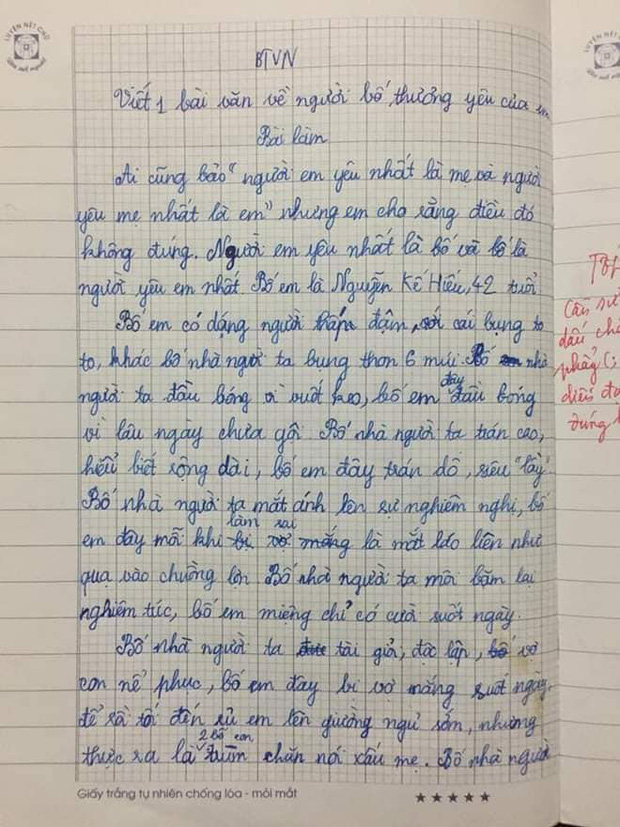 LUYỆN NÉT CHỮ
RÈN NẾT NGƯỜI
BTVN
Viết 1 bài văn về người bố thương yêu của em
Bài làm
Ai cũng bảo "người em yêu nhất là mẹ và người
yêu mẹ nhất là em" nhưng em cho rằng điều đó
không đúng. Người em yêu nhất là bố và bố là
người yêu em nhất. Bố em là Nguyễn Kế Hiếu, 42 tuổi
Bố em có dáng người thấp đậm, với cái bụng to
to, khác bố nhà người ta bụng thon 6 múi. Bố nhà
người ta đầu bóng vì vuốt keo, bố em đây đầu bóng
vì lâu ngày chưa gội. Bố nhà người ta trán cao,
hiểu biết rộng dài, bố em đây trán dồ, siêu "lầy"
Bố nhà người ta mắt ánh lên sự nghiêm nghị, bố
em đây mỗi khi làm sai bị vợ mắng là mắt láo liên như
qua vào chuồng lợn. Bố nhà người ta môi bặm lại
nghiêm túc, bố em miệng chỉ có cười suốt ngày.
Bố nhà người ta tài giỏi, độc lập, vợ
con nể phục, bố em đây bị vợ mắng suốt ngày,
để rồi tối đến rủ em lên giường ngủ sớm, nhưng
thực ra là 2 bố con trùm chăn nói xấu mẹ. Bố nhà người
Giấy trắng tự nhiên chống lóa - mỏi mắt
Cần sử
dấu ch
phẩy (;
diễn đạ
đúng